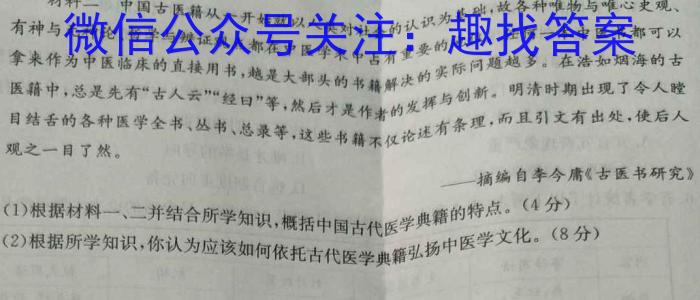 材料二 中国古医籍从一开始就以 类对社会的认识为基础，故各种唯物与唯心史观、
微信公众号关注：趣找答案
有神与 都在中医学术中占有重要的 中医书都可以
拿来作为中医临床的直接用书，越是大部头的书籍解决的实际问题越多。在浩如烟海的古
医籍中，总是先有“古人云”“经曰”等，然后才是作者的发挥与创新。明清时期出现了令人瞠
目结舌的各种医学全书、丛书、总录等，这些书籍不仅论述有条理，而且引文有出处，使后人
观之一目了然。
——摘编自李今庸《古医书研究》
(1)根据材料一、二并结合所学知识，概括中国古代医学典籍的特点。(4分)
(2)根据所学知识，你认为应该如何依托古代医学典籍弘扬中医学文化。(8分)